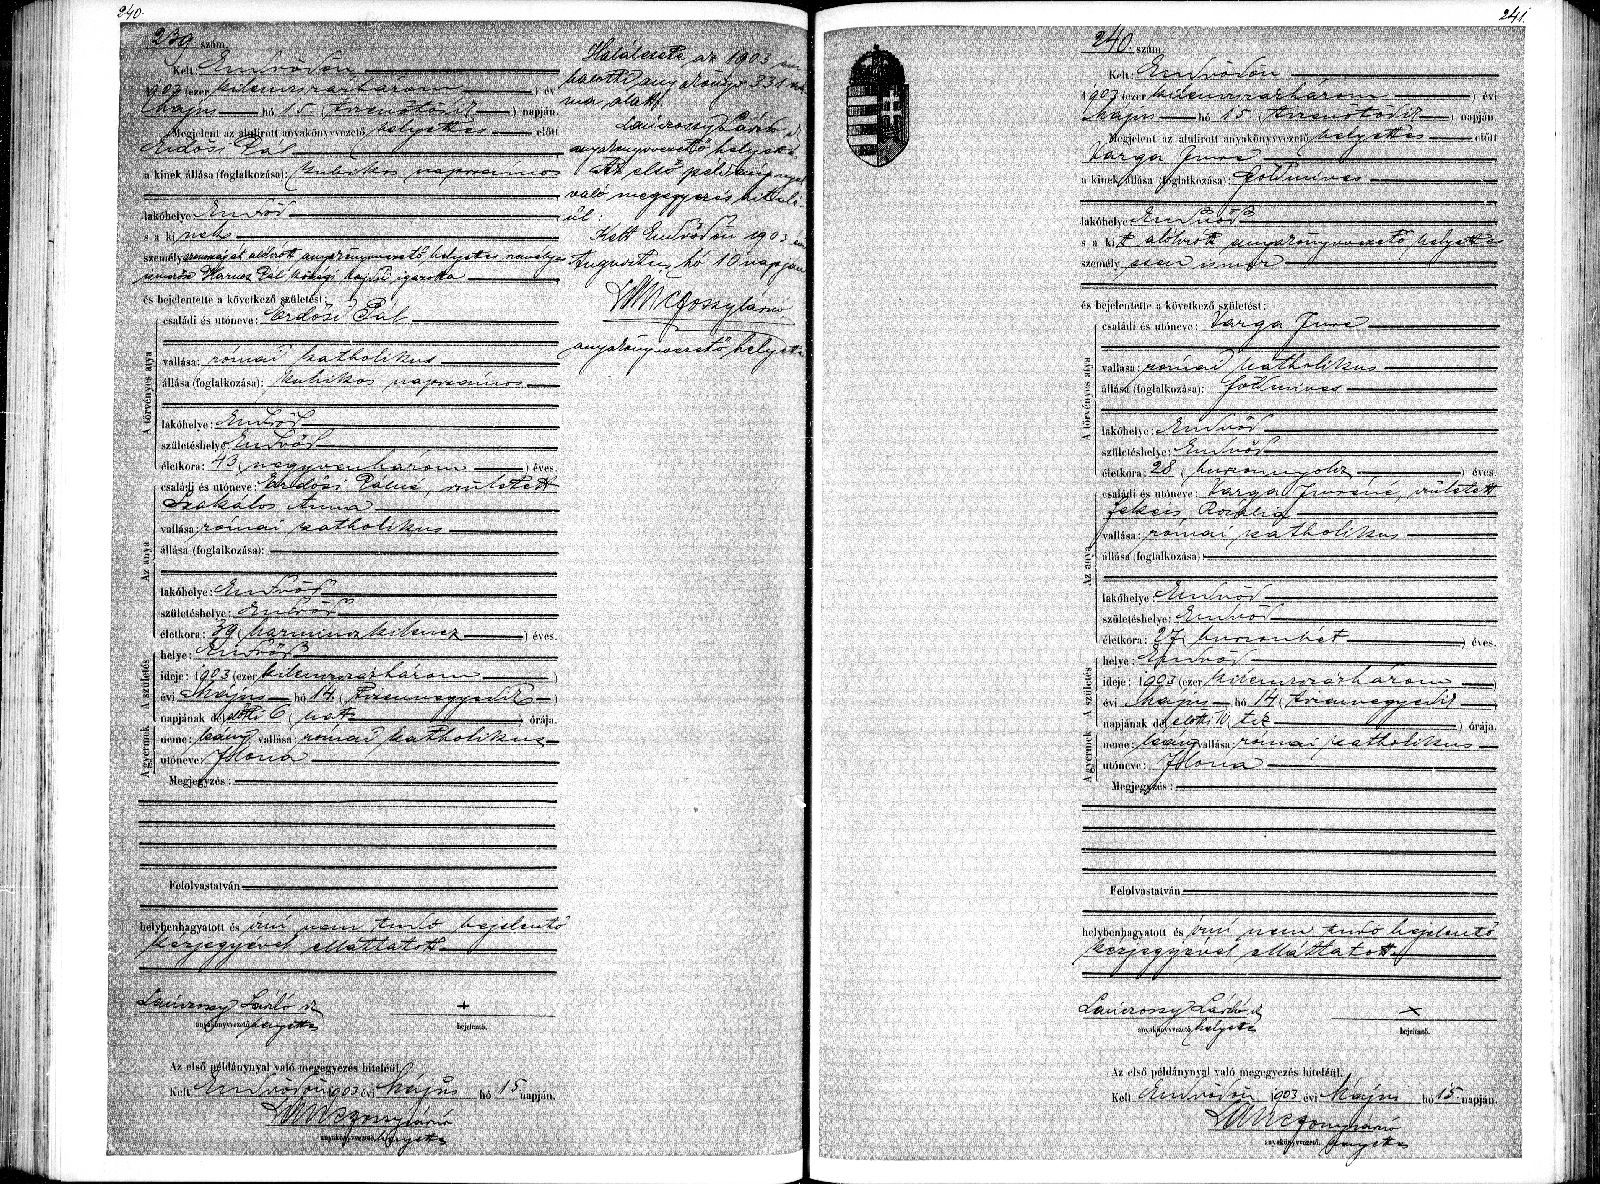 240.
239 szám.
Kelt Endrődön
1903 (ezer kilenczszázhárom ) évi
Május hó 15. (tizenötödik ) napján.
Megjelent az alulirott anyakönyvvezető helyettes előtt
Erdősi Pál
a kinek állása (foglalkozása): kubikos napszámos
lakóhelye Endrőd
s a ki nek
személyazonosságát alólirott anyakönyvvezető helyettes
Pál községi igazolta
és bejelentette a következő születést:
családi és utóneve: Erdősi Pál
A törvényes atya
vallása: római katholikus
állása (foglalkozása): kubikos napszámos
lakóhelye: Endrőd
születéshelye Endrőd
életkora: 43 (negyvenhárom ) éves.
családi és utóneve: Erdősi Pálné, született
Szakálos Anna
Az anya
vallása: római katholikus
állása (foglalkozása):
lakóhelye: Endrőd
születéshelye: Endrőd
életkora: 39 (harminczkilencz ) éves.
A gyermek A születés
helye: Endrőd
ideje: 1903 (ezer kilenczszázhárom )
évi Május hó 14. (tizennegyedik )
napjának de. előtti 6 (hat ) órája.
neme: leány vallása: római katholikus
utóneve: Ilona
Megjegyzés:
Felolvastatván
helybenhagyatott és irni nem tudó bejelentő
kézjegyével elláttatott
László
anyakönyvvezető helyettes
+
bejelentő.
Az első példánynyal való megegyezés hiteléül.
Kelt Endrődön 1903 évi Május hó 15 napján.
anyakönyvvezető helyettes
Halálesete az 1903
halotti anyakönyv 331
alatt.
anyakönyvvezető helyettes
Az első példánynyal
való megegyezés hitelé
ül.
Kelt Endrődön 1903 évi
Augusztus hó 10 napján
anyakönyvvezető helyettes
241.
240. szám.
Kelt: Endrődön
1903 (ezer kilenczszázhárom ) évi
Május hó 15. (tizenötödik ) napján.
Megjelent az alulirott anyakönyvvezető helyettes előtt
Varga Imre
a kinek állása (foglalkozása): földmíves
lakóhelye Endrőd
s a kit alólirott anyakönyvvezető helyettes
személyesen ismer
és bejelentette a következő születést:
családi és utóneve: Varga Imre
A törvényes atya
vallása: római katholikus
állása (foglalkozása): földmíves
lakóhelye: Endrőd
születéshelye: Endrőd
életkora: 28 (huszonnyolcz ) éves.
családi és utóneve: Varga Imréné, született
Rozália
Az anya
vallása: római katholikus
állása (foglalkozása):
lakóhelye: Endrőd
születéshelye: Endrőd
életkora: 27 (huszonhét ) éves.
A gyermek A születés
helye: Endrőd
ideje: 1903 (ezer kilenczszázhárom )
évi Május hó 14 (tizennegyedik )
napjának dél előtti 10 (tiz ) órája.
neme: leány vallása: római katholikus
utóneve: Ilona
Megjegyzés:
Felolvastatván
helybenhagyatott és irni nem tudó bejelentő
kézjegyével elláttatott
László
anyakönyvvezető helyettes
×
bejelentő.
Az első példánynyal való megegyezés hiteléül.
Kelt Endrődön 1903 évi Május hó 15 napján.
anyakönyvvezető helyettes